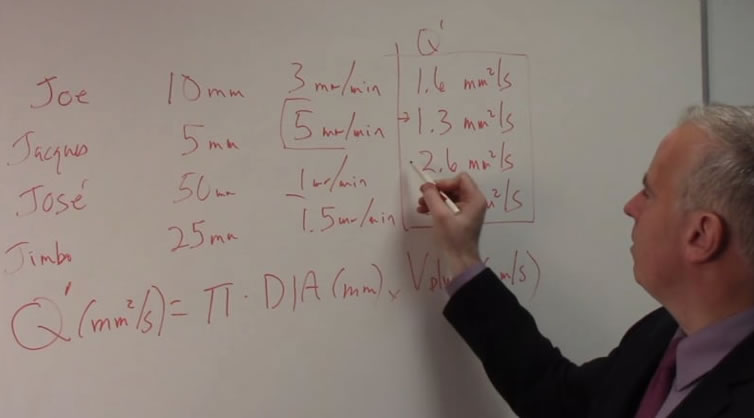 Q'
Joe 10mm 3 mm/min 1.6 mm²/s
Jacques 5mm 5 mm/min → 1.3 mm²/s
José 50mm 1 mm/min 2.6 mm²/s
Jimbo 25mm 1.5 mm/min m²/s
Q' (mm²/s) = π · DIA (mm) x